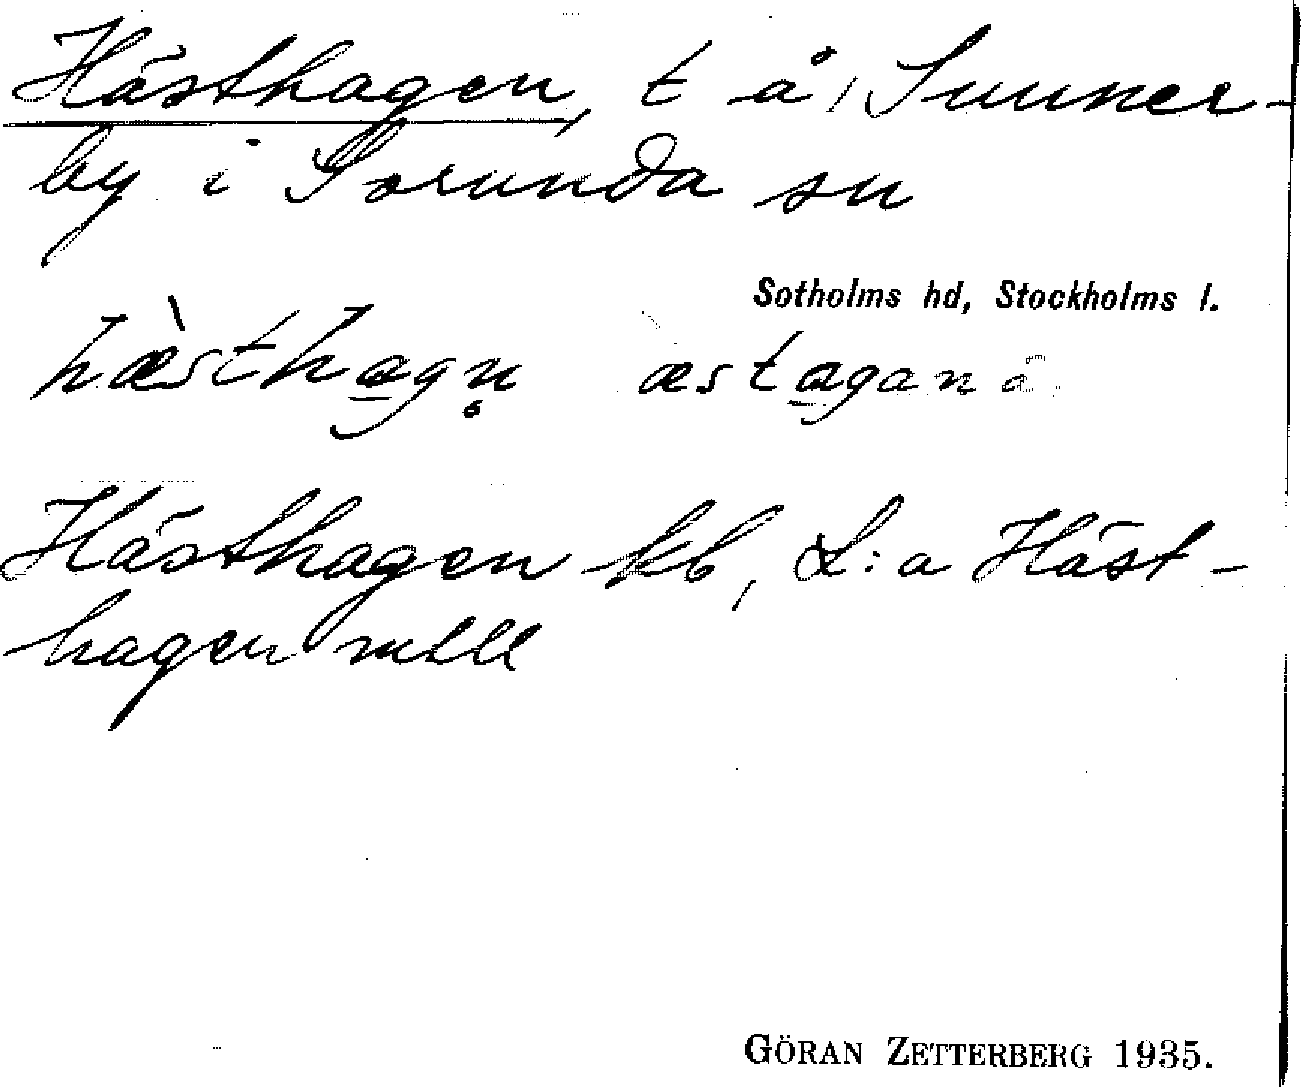 Hästhagen, t å, Sunner-
by i Sorunda sn
Sotholms hd, Stockholms l.
hæ̀sthagn̥ æstagan
Hästhagen kb, L:a Häst-
hagen
GÖRAN ZETTERBERG 1935.